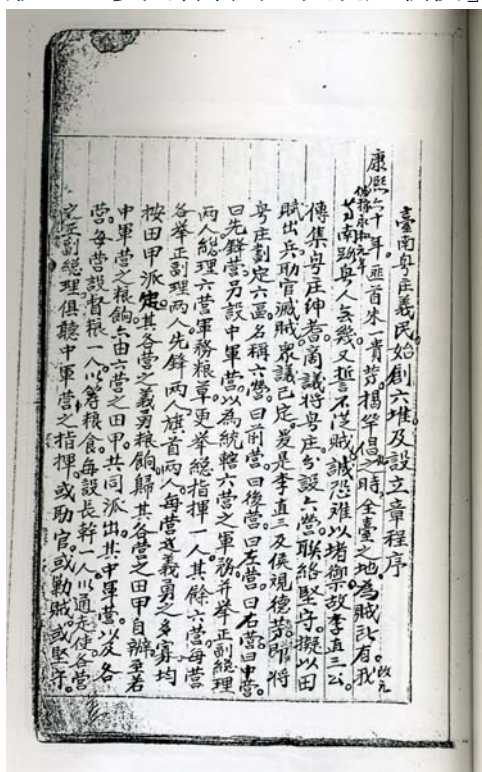 臺南粵庄義民。始創六堆及設立章程序
康熙六十年。匪首朱一貴等。揭竿倡乱之時。全臺之地。為賊所有。我
改元
偽稱永和元年
等南路粵人無幾。又誓不従賊。誠恐难以堵禦。故李直三公。
傳集粵庄紳耆。商議將粵庄分設六營。聯絡堅守。擬以田
賦出兵。助官滅賊。眾議已定。爰是李直三及侯觀德等。即將
粵庄劃定六區。名稱六營。曰前營。曰後營。曰左營。曰右營。曰中營。
曰先鋒營。另設中軍營。以為統轄六營之軍務。并举正副總理
兩人。總理六營軍務粮草。更举總指揮一人。其餘六營。每營
各举正副理兩人。先鋒兩人。旗首兩人。每營之義勇之多寡。均
按田甲派定。其各營之義勇粮餉。歸其各營之田甲自辦。至若
中軍營之粮餉。亦由六營之田甲。共同派出。其中軍營。以及各
營。每營設督粮一人。以筹粮食。每設長幹一人。以通走使。各營
正副總理。俱聽中軍營之指揮。或助官。或勦賊。或堅守。